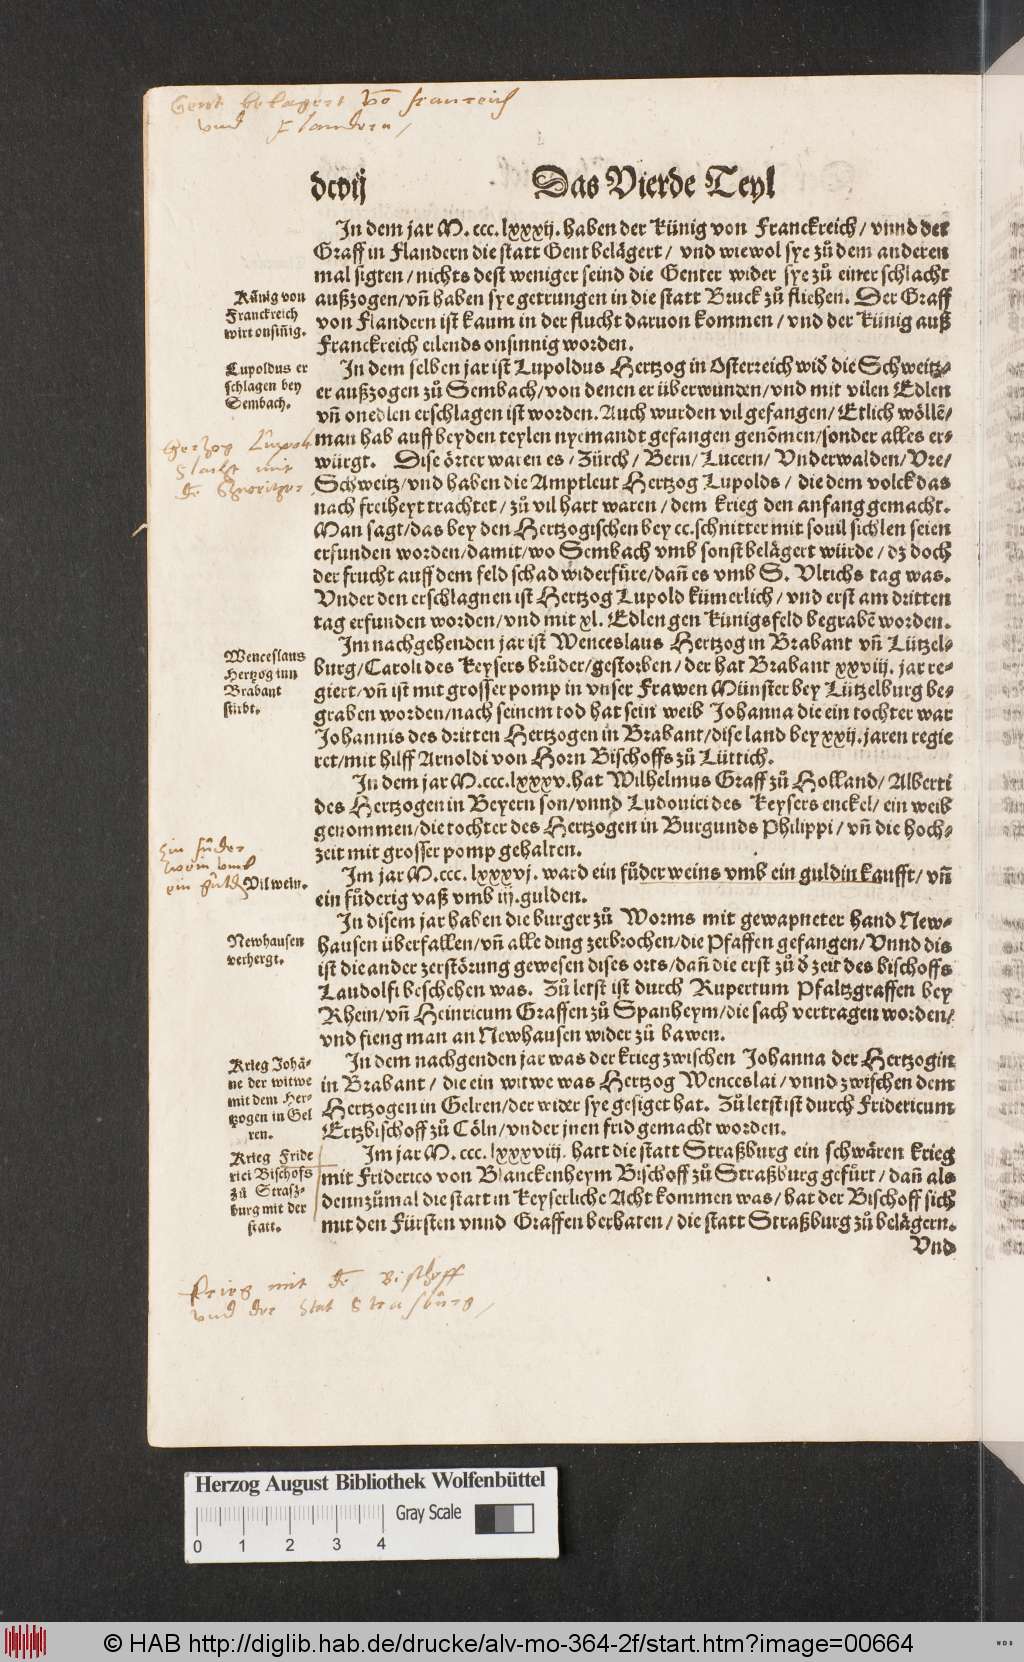 Gent belagert võ Franreich
vnd Flandern/
dcvij Das Vierde Teyl
In dem jar M.ccc.lxxxij. haben der Künig von Franckreich/ vnnd der
Graff in Flandern die statt Gent belägert/ vnd wiewol sye zů dem anderen
mal sigten/nichts dest weniger seind die Genter wider sye zů einer schlacht
außzogen/vñ haben sye getrungen in die statt Bruck zů fliehen. Der Graff
von Flandern ist kaum in der flucht daruon kommen/ vnd der Künig auß
Franckreich eilends onsinnig worden.
Künig von
Franckreich
wirt onsiñig.
In dem selben jar ist Lupoldus Hertzog in Osterreich wid̃ die Schweitz-
er außzogen zů Sembach/von denen er überwunden/vnd mit vilen Edlen
vñ onedlen erschlagen ist worden. Auch wurden vil gefangen/ Etlich wöllẽ/
man hab auff beyden teylen nyemandt gefangen genõmen/sonder alles er-
würgt. Dise örter waren es/ Zürch/ Bern/ Lucern/ Vnderwalden/ Vre/
Schweitz/vnd haben die Amptleut Hertzog Lupolds/ die dem volck das
nach freiheyt trachtet/ zů vil hart waren/dem krieg den anfang gemacht.
Man sagt/das bey den Hertzogischen bey cc.schnitter mit souil sichlen seien
erfunden worden/damit/wo Sembach vmb sonst belägert würde/ dz doch
der frucht auff dem feld schad widerfüre/dañ es vmb S. Vlrichs tag was.
Vnder den erschlagnen ist Hertzog Lupold kümerlich/ vnd erst am dritten
tag erfunden worden/vnd mit xl. Edlen gen Künigsfeld begrabẽ worden.
Lupoldus er
schlagen bey
Sembach.
Hertzog Lupolt
slacht mit
dẽ Schweitzer
Im nachgehenden jar ist Wenceslaus Hertzog in Brabant vñ Lützel-
burg/Caroli des Keysers brůder/gestorben/ der hat Brabant xxviij. jar re-
giert/vñ ist mit grosser pomp in vnser Frawen Münster bey Lützelburg be-
graben worden/nach seinem tod hat sein weib Johanna die ein tochter war
Johannis des dritten Hertzogen in Brabant/dise land bey xxij.jaren regie
ret/mit hilff Arnoldi von Horn Bischoffs zů Lüttich.
Wenceslaus
Hertzog inn
Brabant
stirbt.
In dem jar M.ccc.lxxxv.hat Wilhelmus Graff zů Holland/ Alberti
des Hertzogen in Beyern son/vnnd Ludouici des Keysers enckel/ ein weib
genommen/die tochter des Hertzogen in Burgunds Philippi/ vñ die hoch-
zeit mit grosser pomp gehalten.
Im jar M.ccc. lxxxvj. ward ein fůder weins vmb ein guldin kaufft/ vñ
ein fůderig vaß vmb iij.gulden.
Ein fůder
wein vmb
ein guld̃
Vil wein.
In disem jar haben die burger zů Worms mit gewapneter hand New-
hausen überfallen/vñ alle ding zerbrochen/die Pfaffen gefangen/Vnnd dis
ist die ander zerstörung gewesen dises orts/dañ die erst zů d̃ zeit des bischoffs
Laudolfi beschehen was. Zů letst ist durch Rupertum Pfaltzgraffen bey
Rhein/vñ Heinricum Graffen zů Spanheym/die sach vertragen worden/
vnd fieng man an Newhausen wider zů bawen.
Newhausen
verhergt.
In dem nachgenden jar was der krieg zwischen Johanna der Hertzogin
in Brabant/ die ein witwe was Hertzog Wenceslai/vnnd zwischen dem
Hertzogen in Gelren/der wider sye gesiget hat. Zů letst ist durch Fridericum
Ertzbischoff zů Cöln/vnder jnen frid gemacht worden.
Krieg Johã-
ne der witwe
mit dem Her-
tzogen in Gel
ren.
Im jar M.ccc. lxxxviij. hatt die statt Straßburg ein schwären krieg
mit Friderico von Blanckenheym Bischoff zů Straßburg gefůrt/ dañ als
dennzůmal die statt in Keyserliche Acht kommen was/ hat der Bischoff sich
mit den Fürsten vnnd Graffen berbaten/ die statt Straßburg zů belägern.
Vnd
Krieg Fride
rici Bischofs
zů Strasz-
burg mit der
statt.
Krieg mit dẽ Bischoff
vnd der Stat Strasburg/
Herzog August Bibliothek Wolfenbüttel
Gray Scale
0 1 2 3 4
© HAB http://diglib.hab.de/drucke/alv-mo-364-2f/start.htm?image=00664